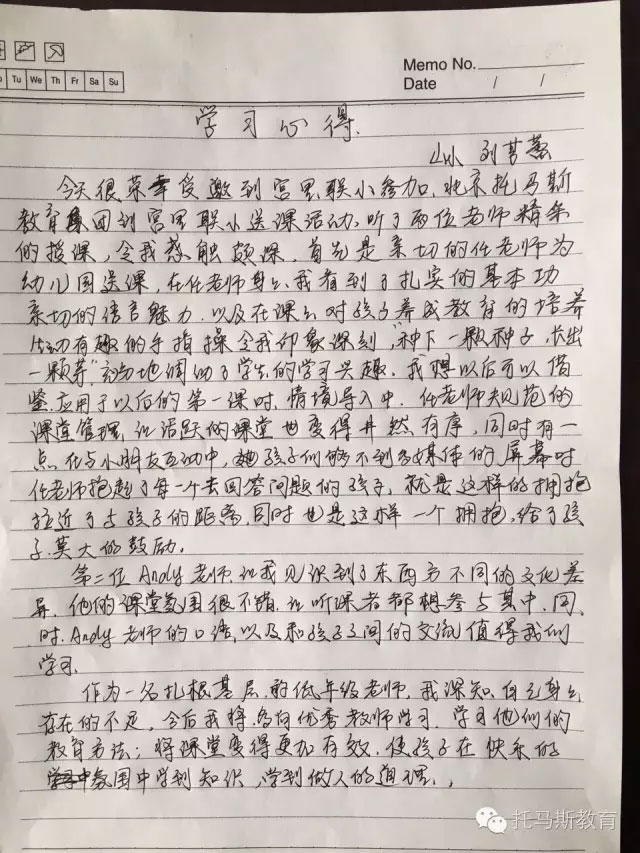 Memo No.
Tu We Th Fr Sa Su
Date / /
学习心得.
刘
今天很荣幸受邀到宫里联小参加,北京托马斯
教育集团到宫里联小送课活动,听了两位老师精条
的授课,令我感触颇深,首先是亲切的任老师为
幼儿园送课,在任老师身上,我看到了扎实的基本功
亲切的语言魅力,以及在课上对孩子养成教育的培养
生动有趣的手指操令我印象深刻,"种下一颗种子,长出
一颗芽"充分地调动了学生的学习兴趣,我想以后可以借
鉴,应用于以后的第一课时,情境导入中.任老师规范的
课堂管理,让活跃的课堂也变得井然有序,同时有一
点,在与小朋友互动中,孩子们够不到多媒体的屏幕时
任老师抱起了每一个去回答问题的孩子,就是这样的拥抱
拉近了与孩子的距离,同时也是这样一个拥抱,给了孩
子莫大的鼓励.
第二位Andy老师,让我见识到了东西方不同的文化差
异,他的课堂氛围很不错,让听课者都想参与其中,同
时,Andy老师的口语,以及和孩子之间的交流值得我们
学习.
作为一名扎根基层的低年级老师,我深知自己身上
存在的不足,今后我将,多向优秀教师学习,学习他们的
教育方法;将课堂变得更加有效,使孩子在快乐的
氛围中学到知识,学到做人的道理.
托马斯教育